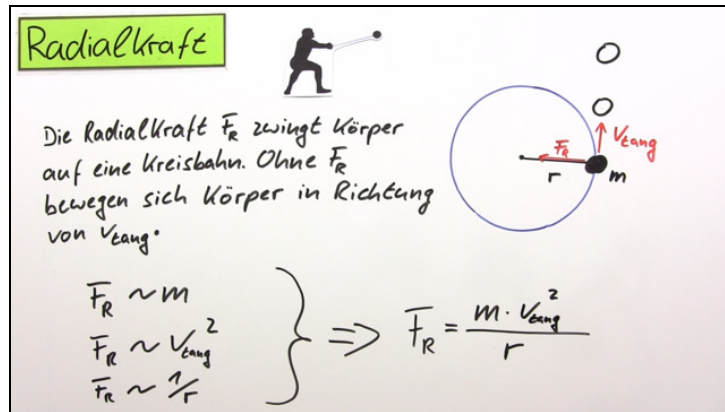 Radialkraft
Die Radialkraft F_R zwingt Körper
auf eine Kreisbahn. Ohne F_R
bewegen sich Körper in Richtung
von v_tang.
F_R
v_tang
r
m
F_R ~ m
F_R ~ v_tang²
F_R ~ 1/r
⇒ F_R = m · v_tang² / r